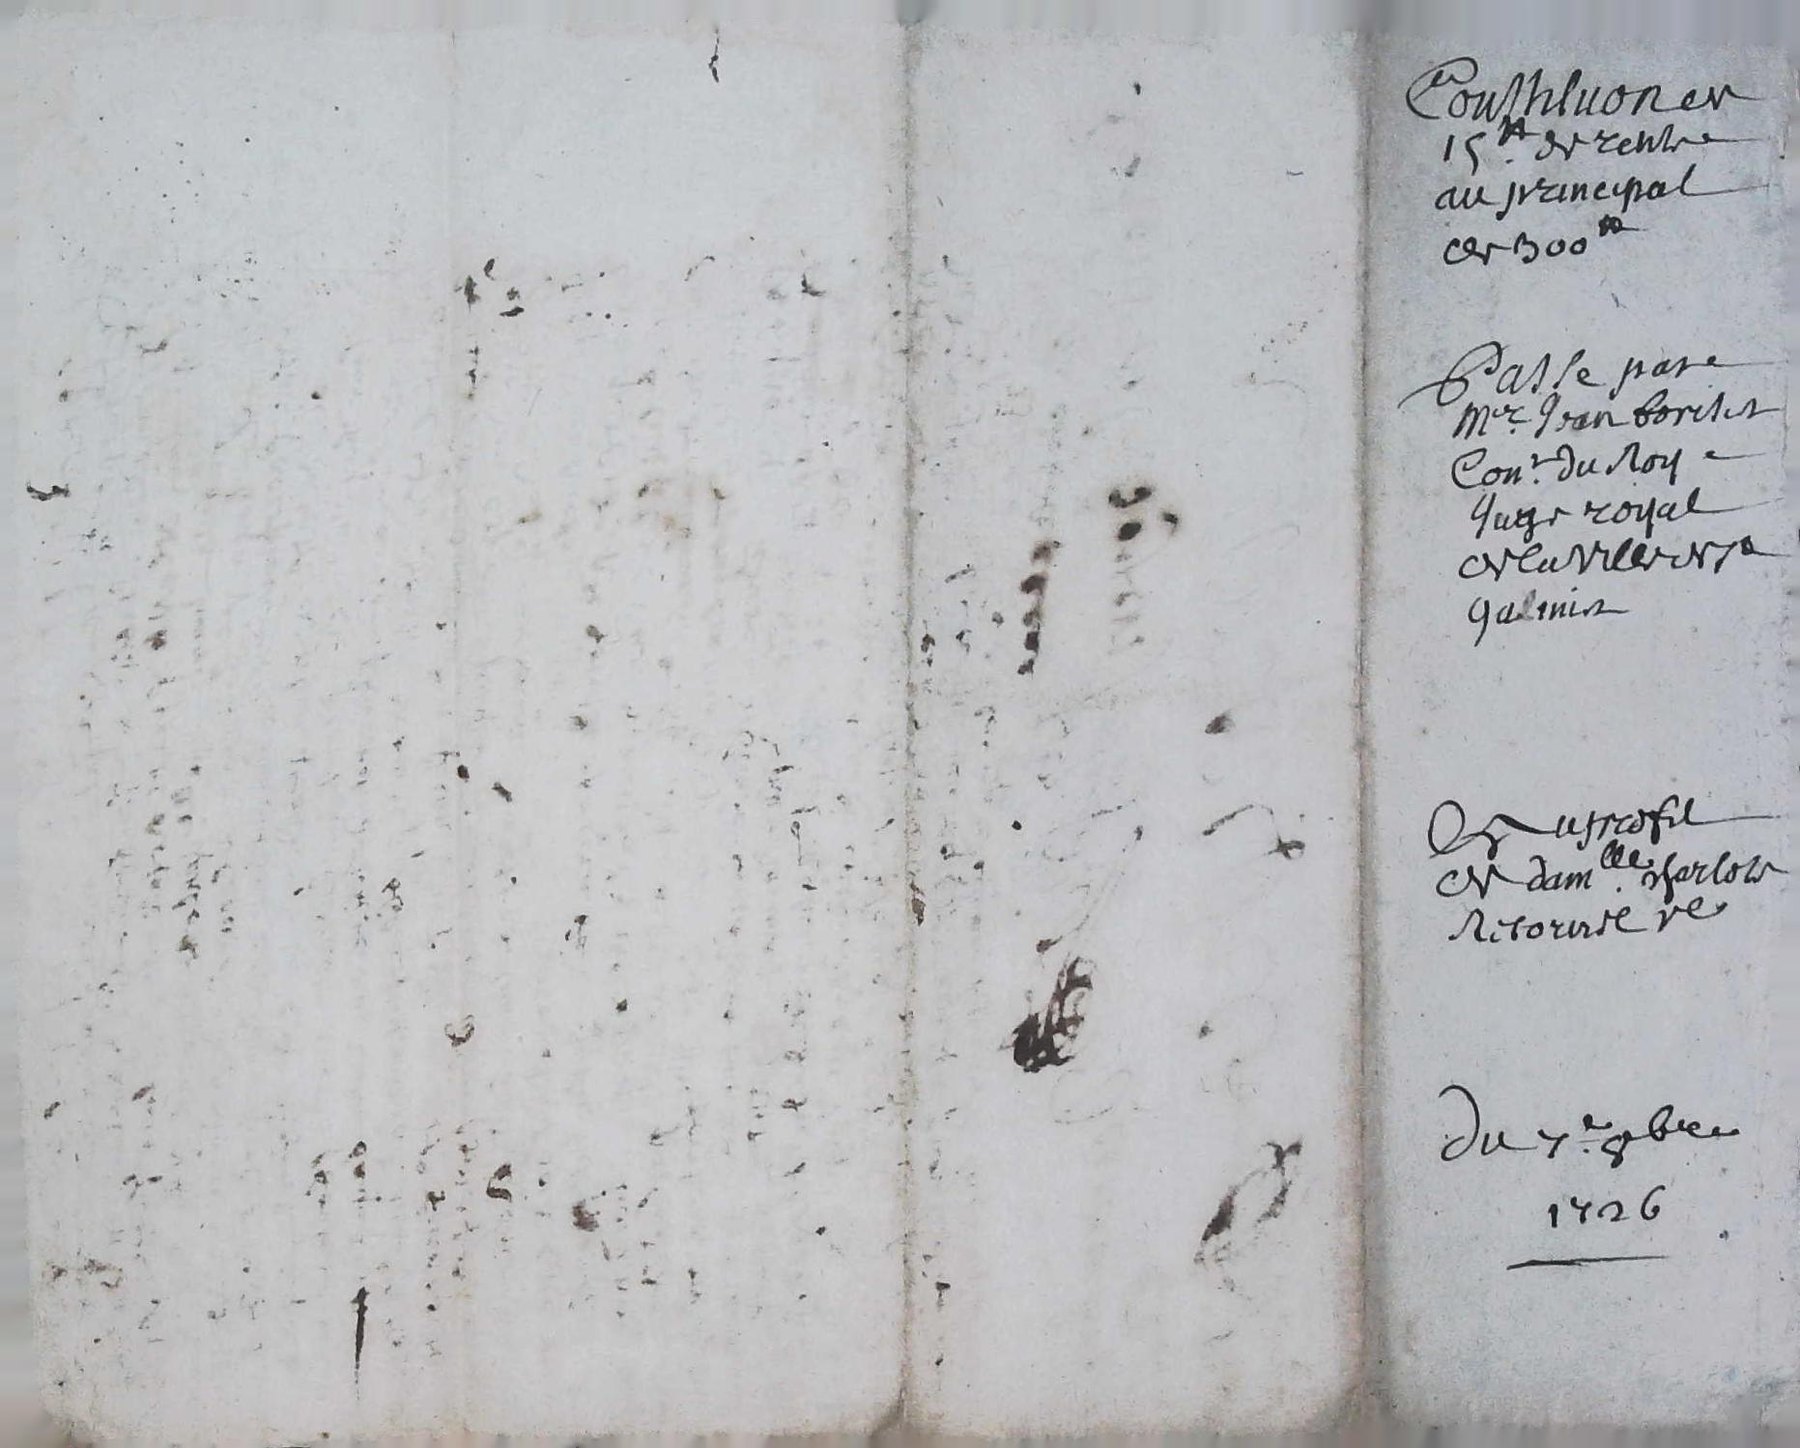 Constitution de
15ᵗᵗ de rente
au principal
de 300ᵗᵗ
Passe par
Mᵉʳ Jean
Conʳ du Roy
Juge royal
de la ville de Sᵗ
Galmier
Au profit
de damˡˡᵉ Charlote
vᵉ
du 7ᵉ 8bre
1726